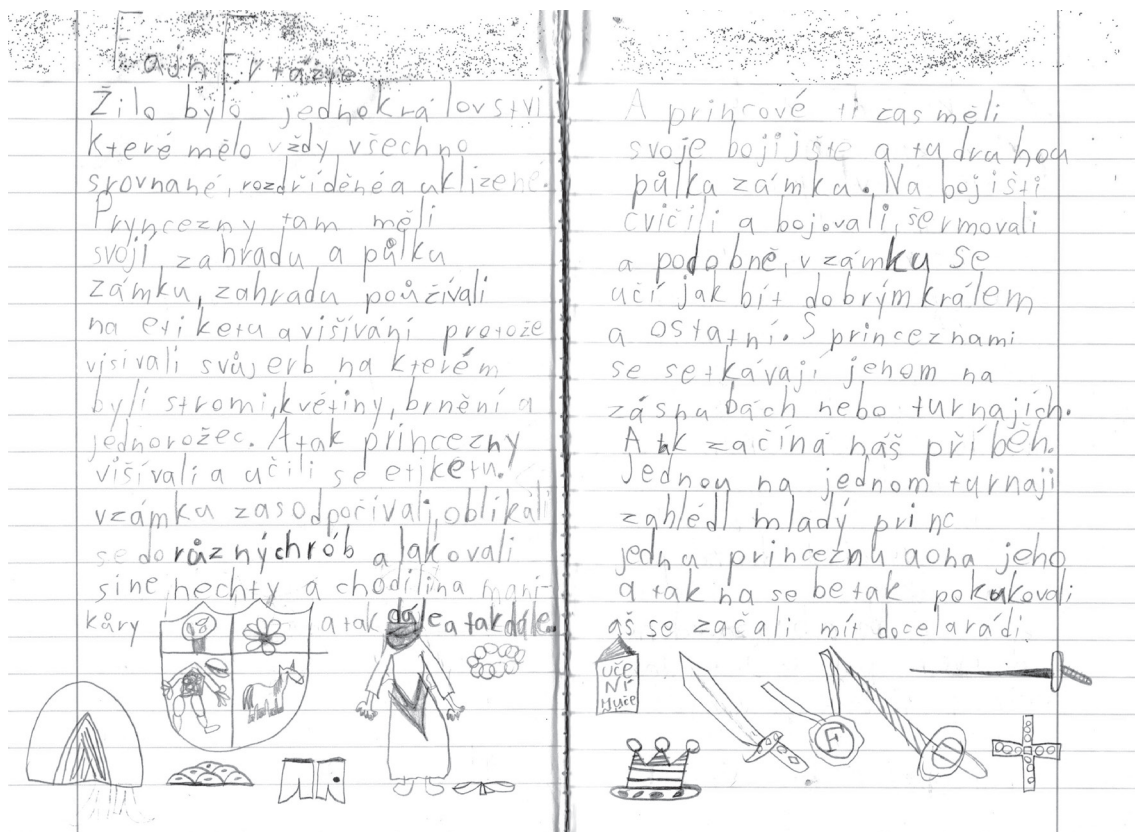 Fajn Frtázie
Žilo bylo jednokrá lovství
které mělo vždy všechno
srovnané, rozdříděné a uklizené.
Pryncezny tam měli
svojí zahradu a půlku
zámku, zahradu používali
na etiketu a višívání protože
višivali svůj erb na kterém
byli stromi, květiny, brnění a
jednorožec. A tak princezny
višívali a učili se etiketu.
v zámku zas odpočívali, oblíkali
se do různých rób a lakovali
si ne nechty a chodili na mani-
kůry a tak dále a tak dále.
A princové ti zas měli
svoje bojijště a tu druhou
půlka zámku. Na bojišti
cvičili a bojovali, šermovali
a podobně, v zámku se
učí jak bít dobrým králem
a ostatní. S princeznami
se setkávají jenom na
zásnubách nebo turnajích.
A tak začíná náš příběh.
Jednou na jednom turnaji
zahlédl mladý princ
jednu princeznu a ona jeho
a tak na se be tak pokukovali
aš se začali mít docela rádi
uče
Ní
Huče
F